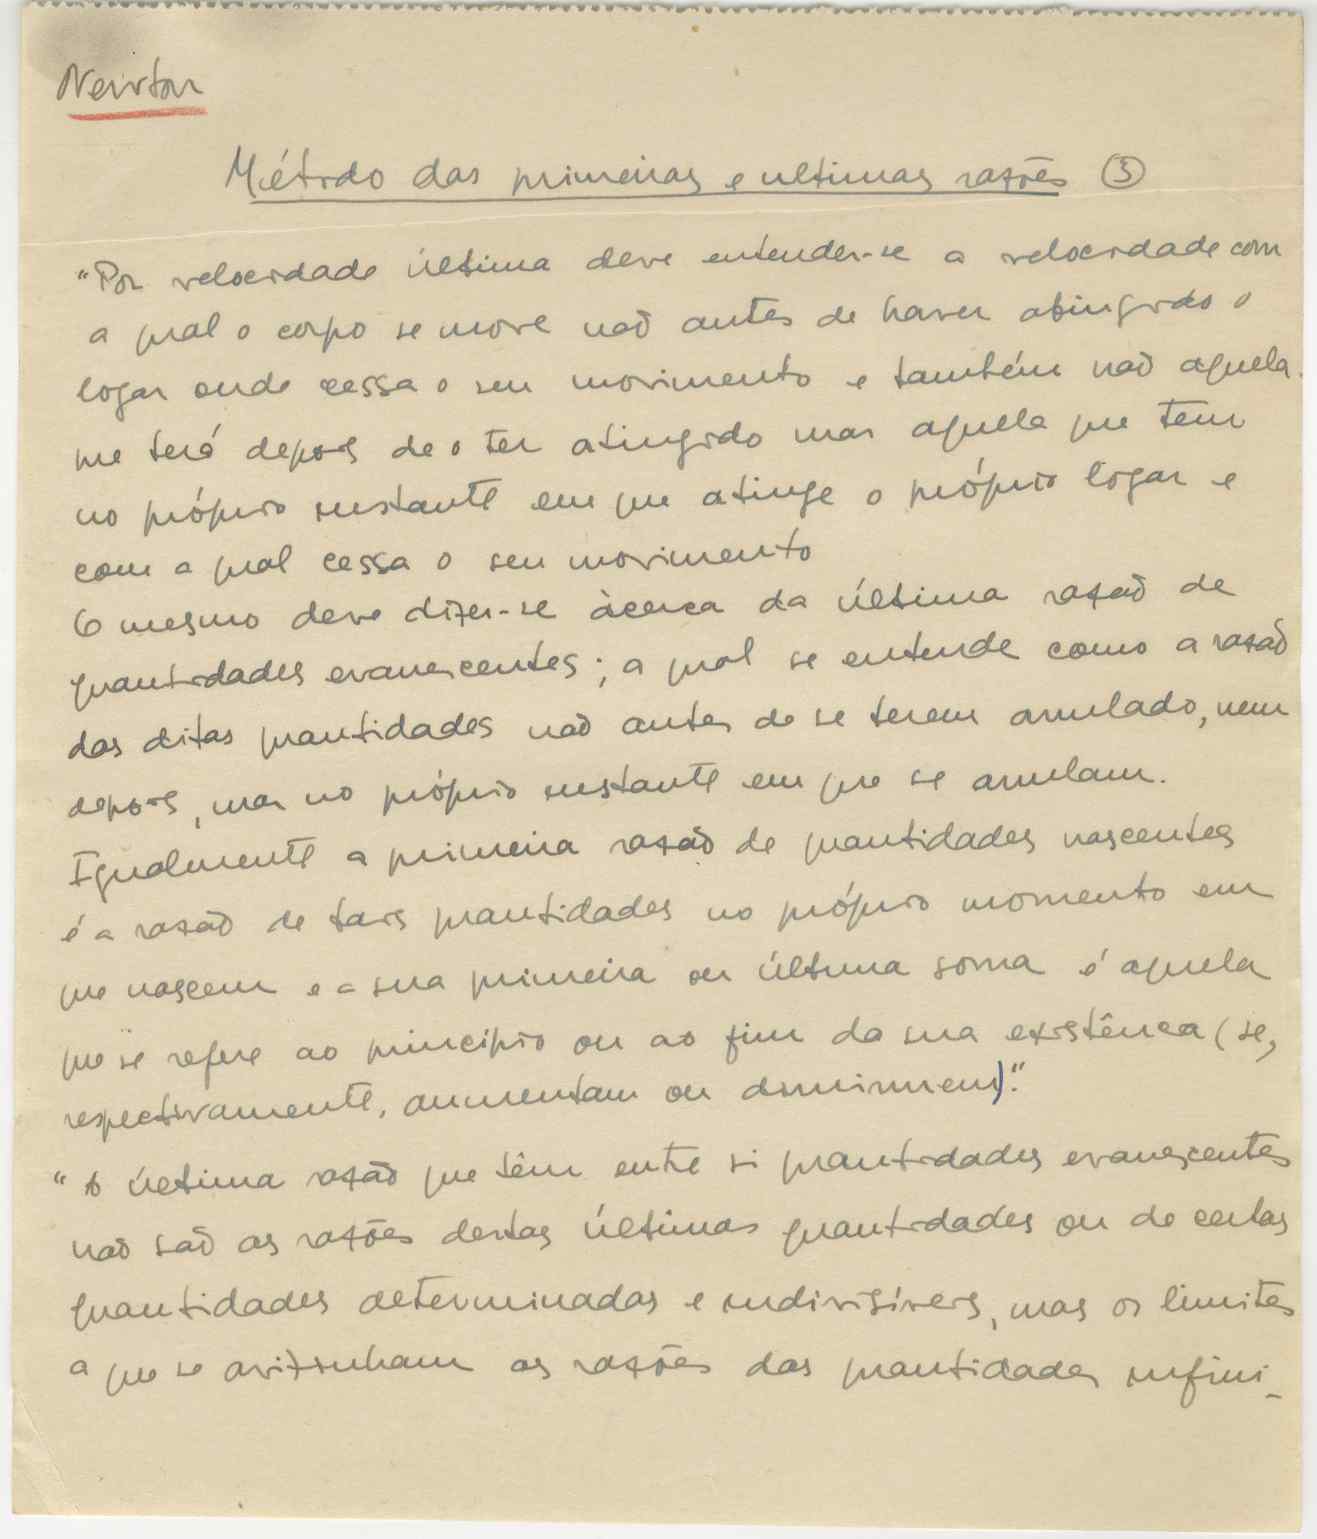 Newton
Método das primeiras e ultimas razões ③
"Por velocidade última deve entender-se a velocidade com
a qual o corpo se move não antes de haver atingido o
logar onde cessa o seu movimento e também não aquela
que terá depois de o ter atingido mas aquela que tem
no próprio instante em que atinge o próprio logar e
com a qual cessa o seu movimento
O mesmo deve dizer-se àcerca da última razão de
quantidades evanescentes; a qual se entende como a razão
das ditas quantidades não antes de se terem anulado, nem
depois, mas no próprio instante em que se anulam.
Igualmente a primeira razão de quantidades nascentes
é a razão de tais quantidades no próprio momento em
que nascem e a sua primeira ou última soma é aquela
que se refere ao princípio ou ao fim da sua existência (se,
respectivamente, aumentam ou diminuem)."
"A última razão que têm entre si quantidades evanescentes
não são as razões destas últimas quantidades ou de certas
quantidades determinadas e indivisíveis, mas os limites
a que se avizinham as razões das quantidades infini-